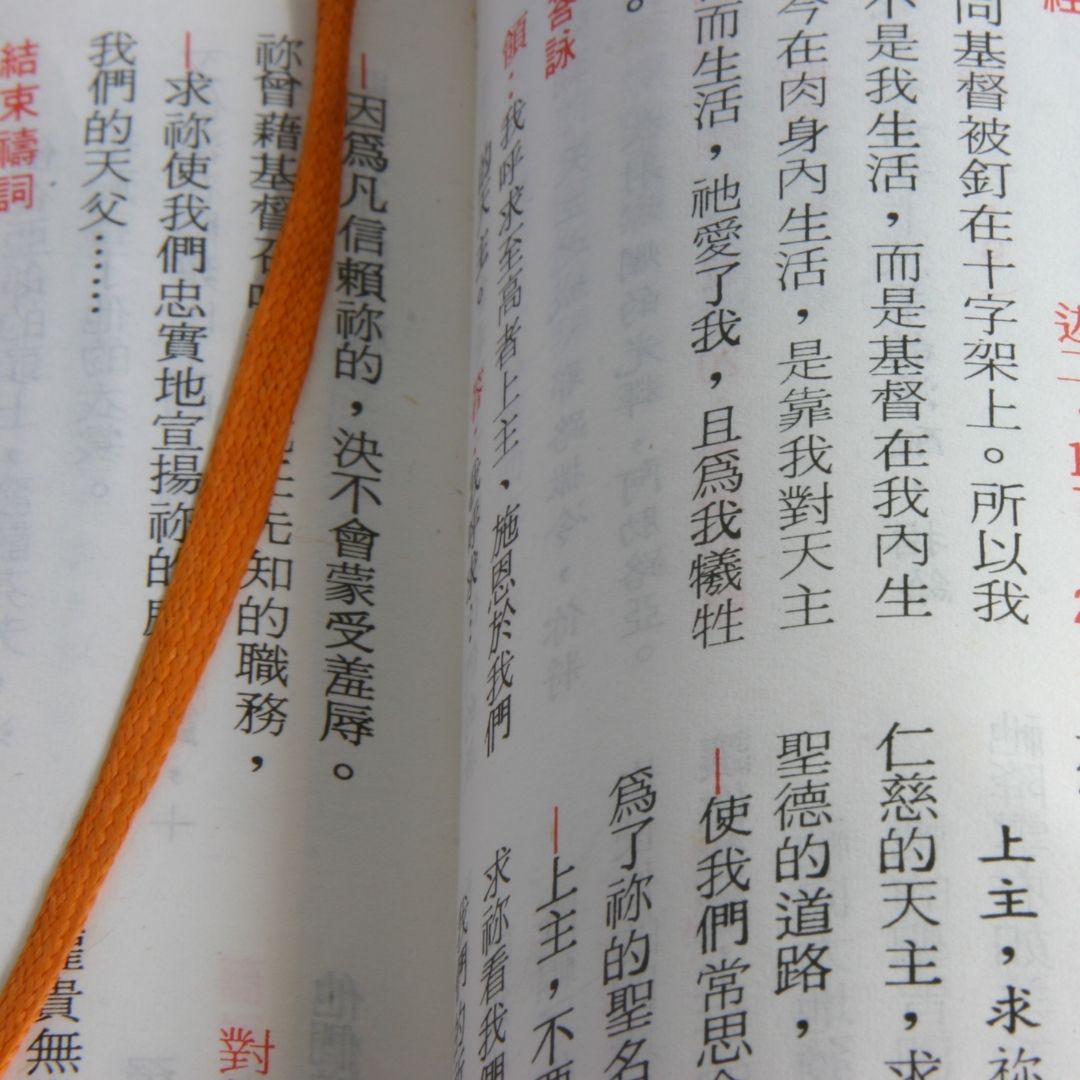 同基督被釘在十字架上。所以我
不是我生活，而是基督在我內生
今在肉身內生活，是靠我對天主
而生活，祂愛了我，且為我犧牲
答詠
領：我呼求至高者上主，施恩於我們
上主，求祢
仁慈的天主，求
聖德的道路，
—使我們常思
為了祢的聖名
—上主，不要
求祢看我們
—因為凡信賴祢的，決不會蒙受羞辱。
祢曾藉基督
知的職務，
—求祢使我們忠實地宣揚祢的
我們的天父……
結束禱詞
對
貴無